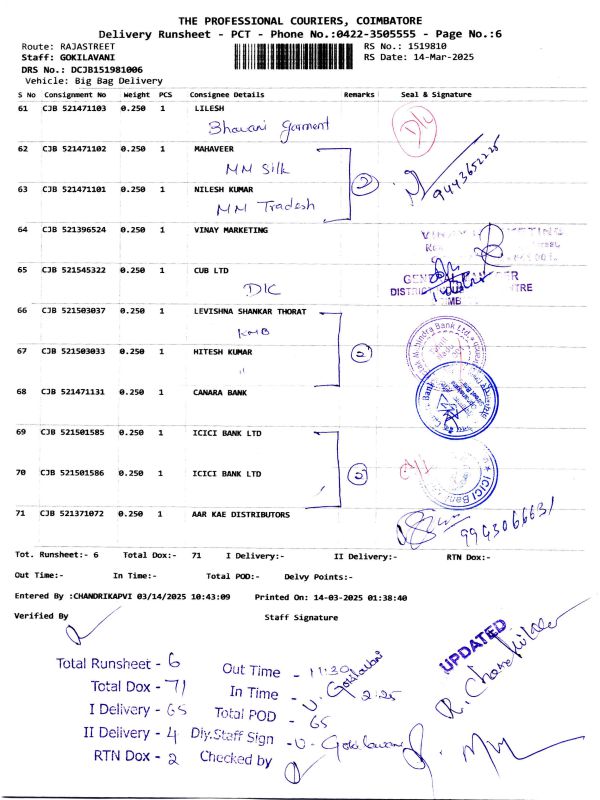 THE PROFESSIONAL COURIERS, COIMBATORE
Delivery Runsheet - PCT - Phone No.:0422-3505555 - Page No.:6
Route: RAJASTREET RS No.: 1519810
Staff: GOKILAVANI RS Date: 14-Mar-2025
DRS No.: DCJB151981006
Vehicle: Big Bag Delivery
S No Consignment No Weight PCS Consignee Details Remarks Seal & Signature
61 CJB 521471103 0.250 1 LILESH
Bhavani Garment D/C
62 CJB 521471102 0.250 1 MAHAVEER
MM Silk 2 9443652225
63 CJB 521471101 0.250 1 NILESH KUMAR
MM Tradesh
64 CJB 521396524 0.250 1 VINAY MARKETING
65 CJB 521545322 0.250 1 CUB LTD
DIC
66 CJB 521503037 0.250 1 LEVISHNA SHANKAR THORAT
KMB
67 CJB 521503033 0.250 1 HITESH KUMAR
"
68 CJB 521471131 0.250 1 CANARA BANK
69 CJB 521501585 0.250 1 ICICI BANK LTD
70 CJB 521501586 0.250 1 ICICI BANK LTD
ICICI Bank
71 CJB 521371072 0.250 1 AAR KAE DISTRIBUTORS
9943066631
Tot. Runsheet:- 6 Total Dox:- 71 I Delivery:- II Delivery:- RTN Dox:-
Out Time:- In Time:- Total POD:- Delvy Points:-
Entered By :CHANDRIKAPVI 03/14/2025 10:43:09 Printed On: 14-03-2025 01:38:40
Verified By Staff Signature
UPDATED
Total Runsheet - 6 Out Time - 11:30
Total Dox - 71 In Time - 2:25
U. Gokilavani
I Delivery - 65 Total POD - 65
II Delivery - 4 Dly.Staff Sign - U. Gokilavani
RTN Dox - 2 Checked by